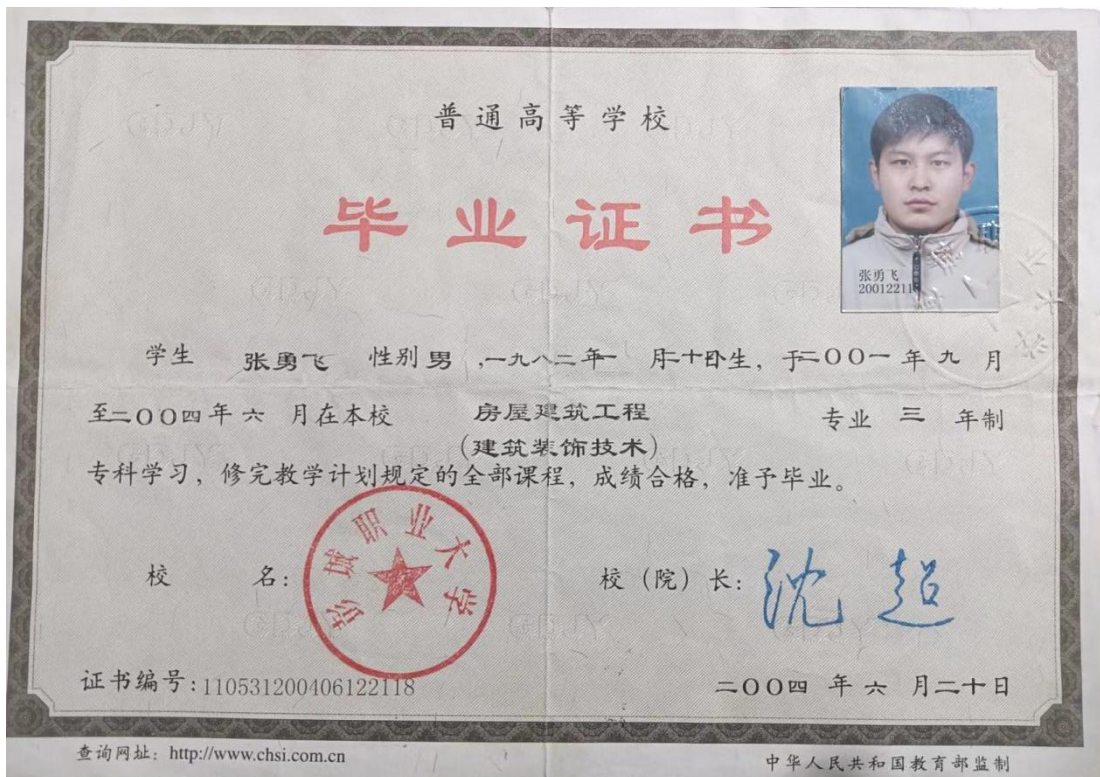 普通高等学校
毕业证书
张勇飞
20012211
学生 张勇飞 性别男,一九八二年一 月二十日生,于二〇〇一年九月
至二〇〇四年六 月在本校 房屋建筑工程 专业 三 年制
(建筑装饰技术)
专科学习,修完教学计划规定的全部课程,成绩合格,准予毕业。
校 名:
彭城职业大学
校(院)长:沈超
证书编号:110531200406122118
二〇〇四 年六 月二十日
查询网址:http://www.chsi.com.cn
中华人民共和国教育部监制